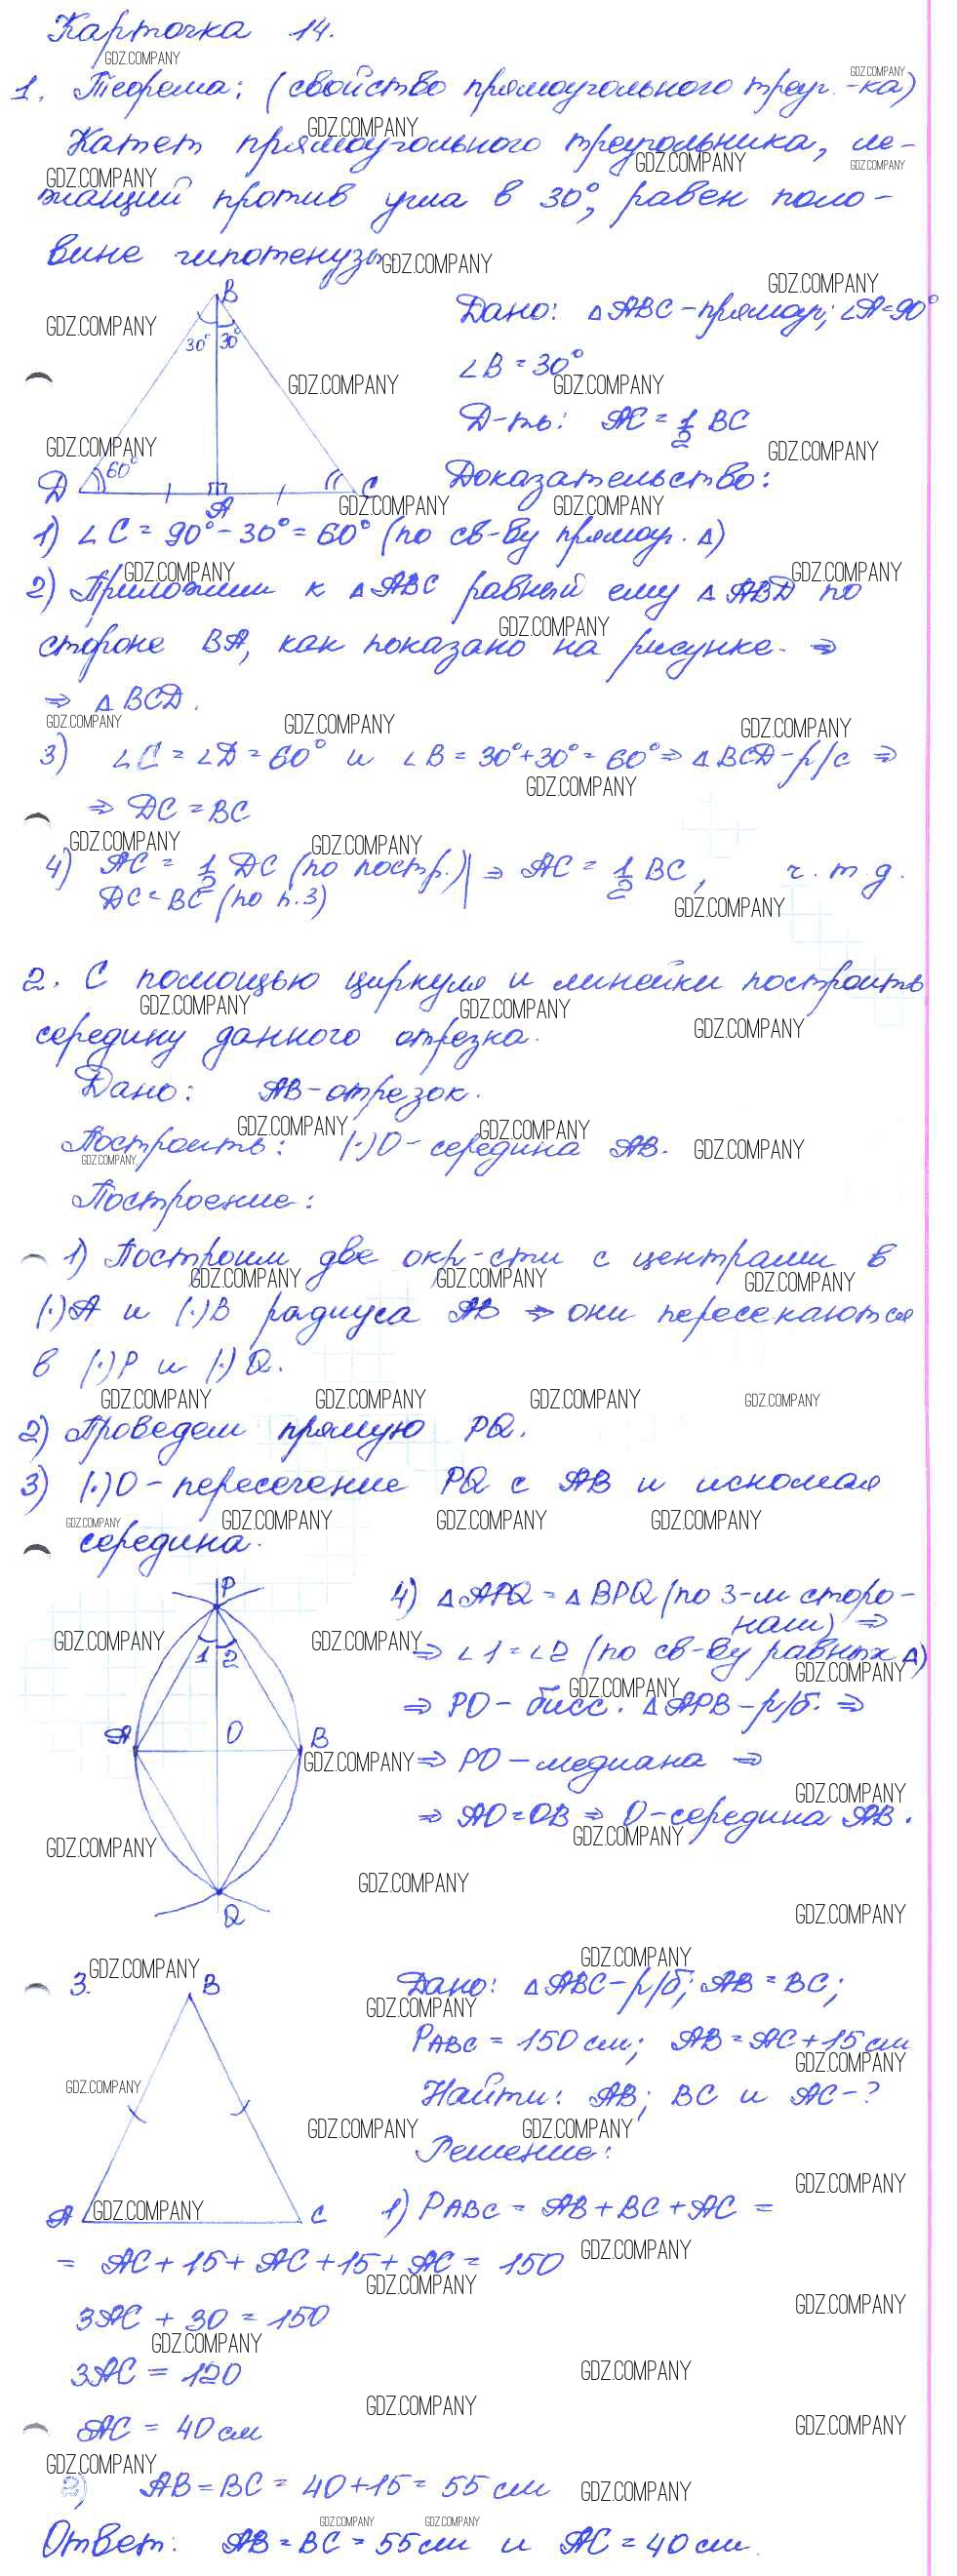 Карточка 14.
1. Теорема: (свойство прямоугольного треуг.-ка)
Катет прямоугольного треугольника, ле-
жащий против угла в 30°, равен поло-
вине гипотенузы
B
30° 30°
60°
D A C
Дано: △ABC - прямоуг; ∠A=90°
∠B = 30°
Д-ть: AC = 1/2 BC
Доказательство:
1) ∠C = 90° - 30° = 60° (по св-ву прямоуг. △)
2) Приложим к △ABC равный ему △ABD по
стороне BA, как показано на рисунке. ⇒
⇒ △BCD.
3) ∠C = ∠D = 60° и ∠B = 30°+30° = 60° ⇒ △BCD - р/с ⇒
⇒ DC = BC
4) AC = 1/2 DC (по постр.) | ⇒ AC = 1/2 BC, ч.т.д.
DC = BC (по п.3)
2. С помощью циркуля и линейки построить
середину данного отрезка.
Дано: AB - отрезок.
Построить: (·)O - середина AB.
Построение:
1) Построим две окр-сти с центрами в
(·)A и (·)B радиуса AB ⇒ они пересекаются
в (·)P и (·)Q.
2) Проведем прямую PQ.
3) (·)O - пересечение PQ с AB и искомая
середина.
P
1 2
A O B
Q
4) △APQ = △BPQ (по 3-м сторо-
нам) ⇒
⇒ ∠1 = ∠2 (по св-ву равных △)
⇒ PO - бисс. △APB - р/б. ⇒
⇒ PO - медиана ⇒
⇒ AO = OB ⇒ O - середина AB.
3.
B
A C
Дано: △ABC - р/б; AB = BC;
PABC = 150 см; AB = AC + 15 см
Найти: AB; BC и AC - ?
Решение:
1) PABC = AB + BC + AC =
= AC + 15 + AC + 15 + AC = 150
3AC + 30 = 150
3AC = 120
AC = 40 см
2) AB = BC = 40 + 15 = 55 см
Ответ: AB = BC = 55 см и AC = 40 см.
GDZ.COMPANY